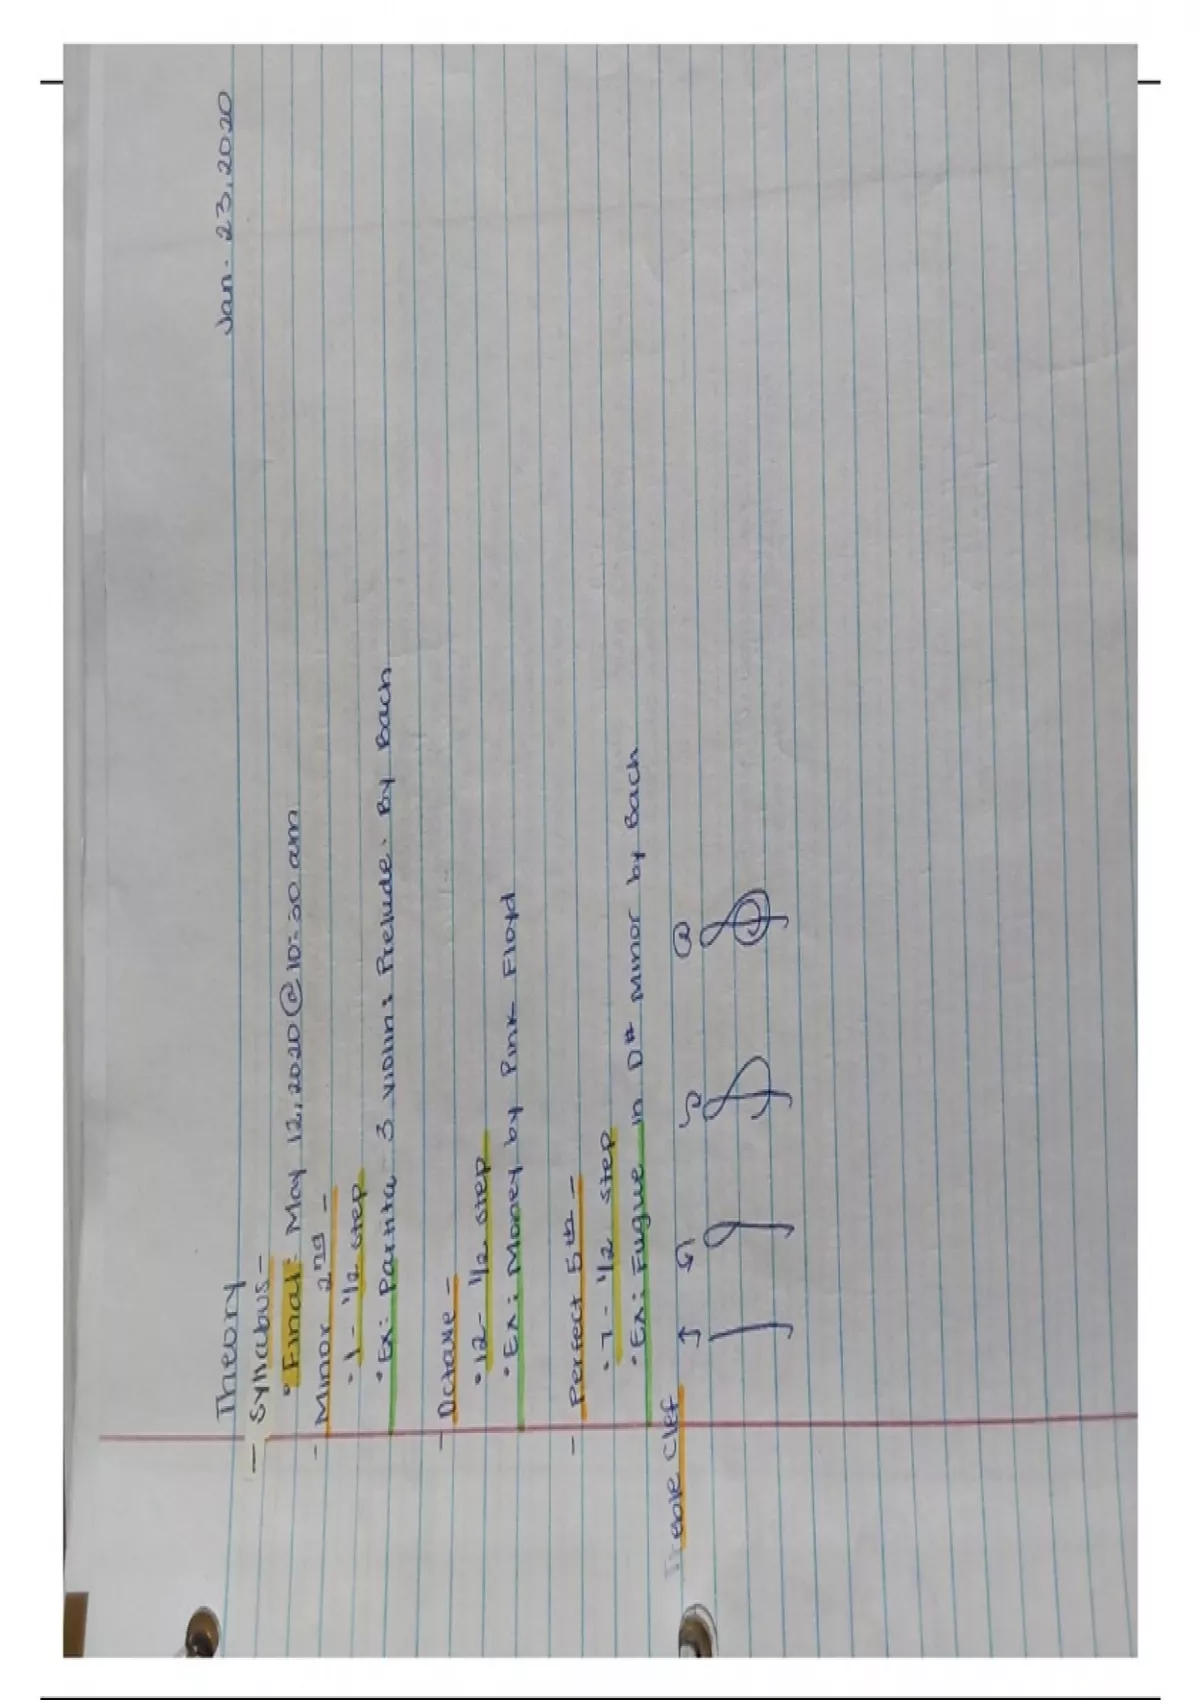 Theory
Jan. 23, 2020
- Syllabus -
• Final: May 12, 2020 @ 10:30 am
- Minor 2nd -
• 1 - 1/2 step
• Ex: Partita 3 violin: Prelude. By Bach
- Octave -
• 12 - 1/2 step
• Ex: Money by Pink Floyd
- Perfect 5th -
• 7 - 1/2 step
• Ex: Fugue in D# Minor by Bach
Treble Clef